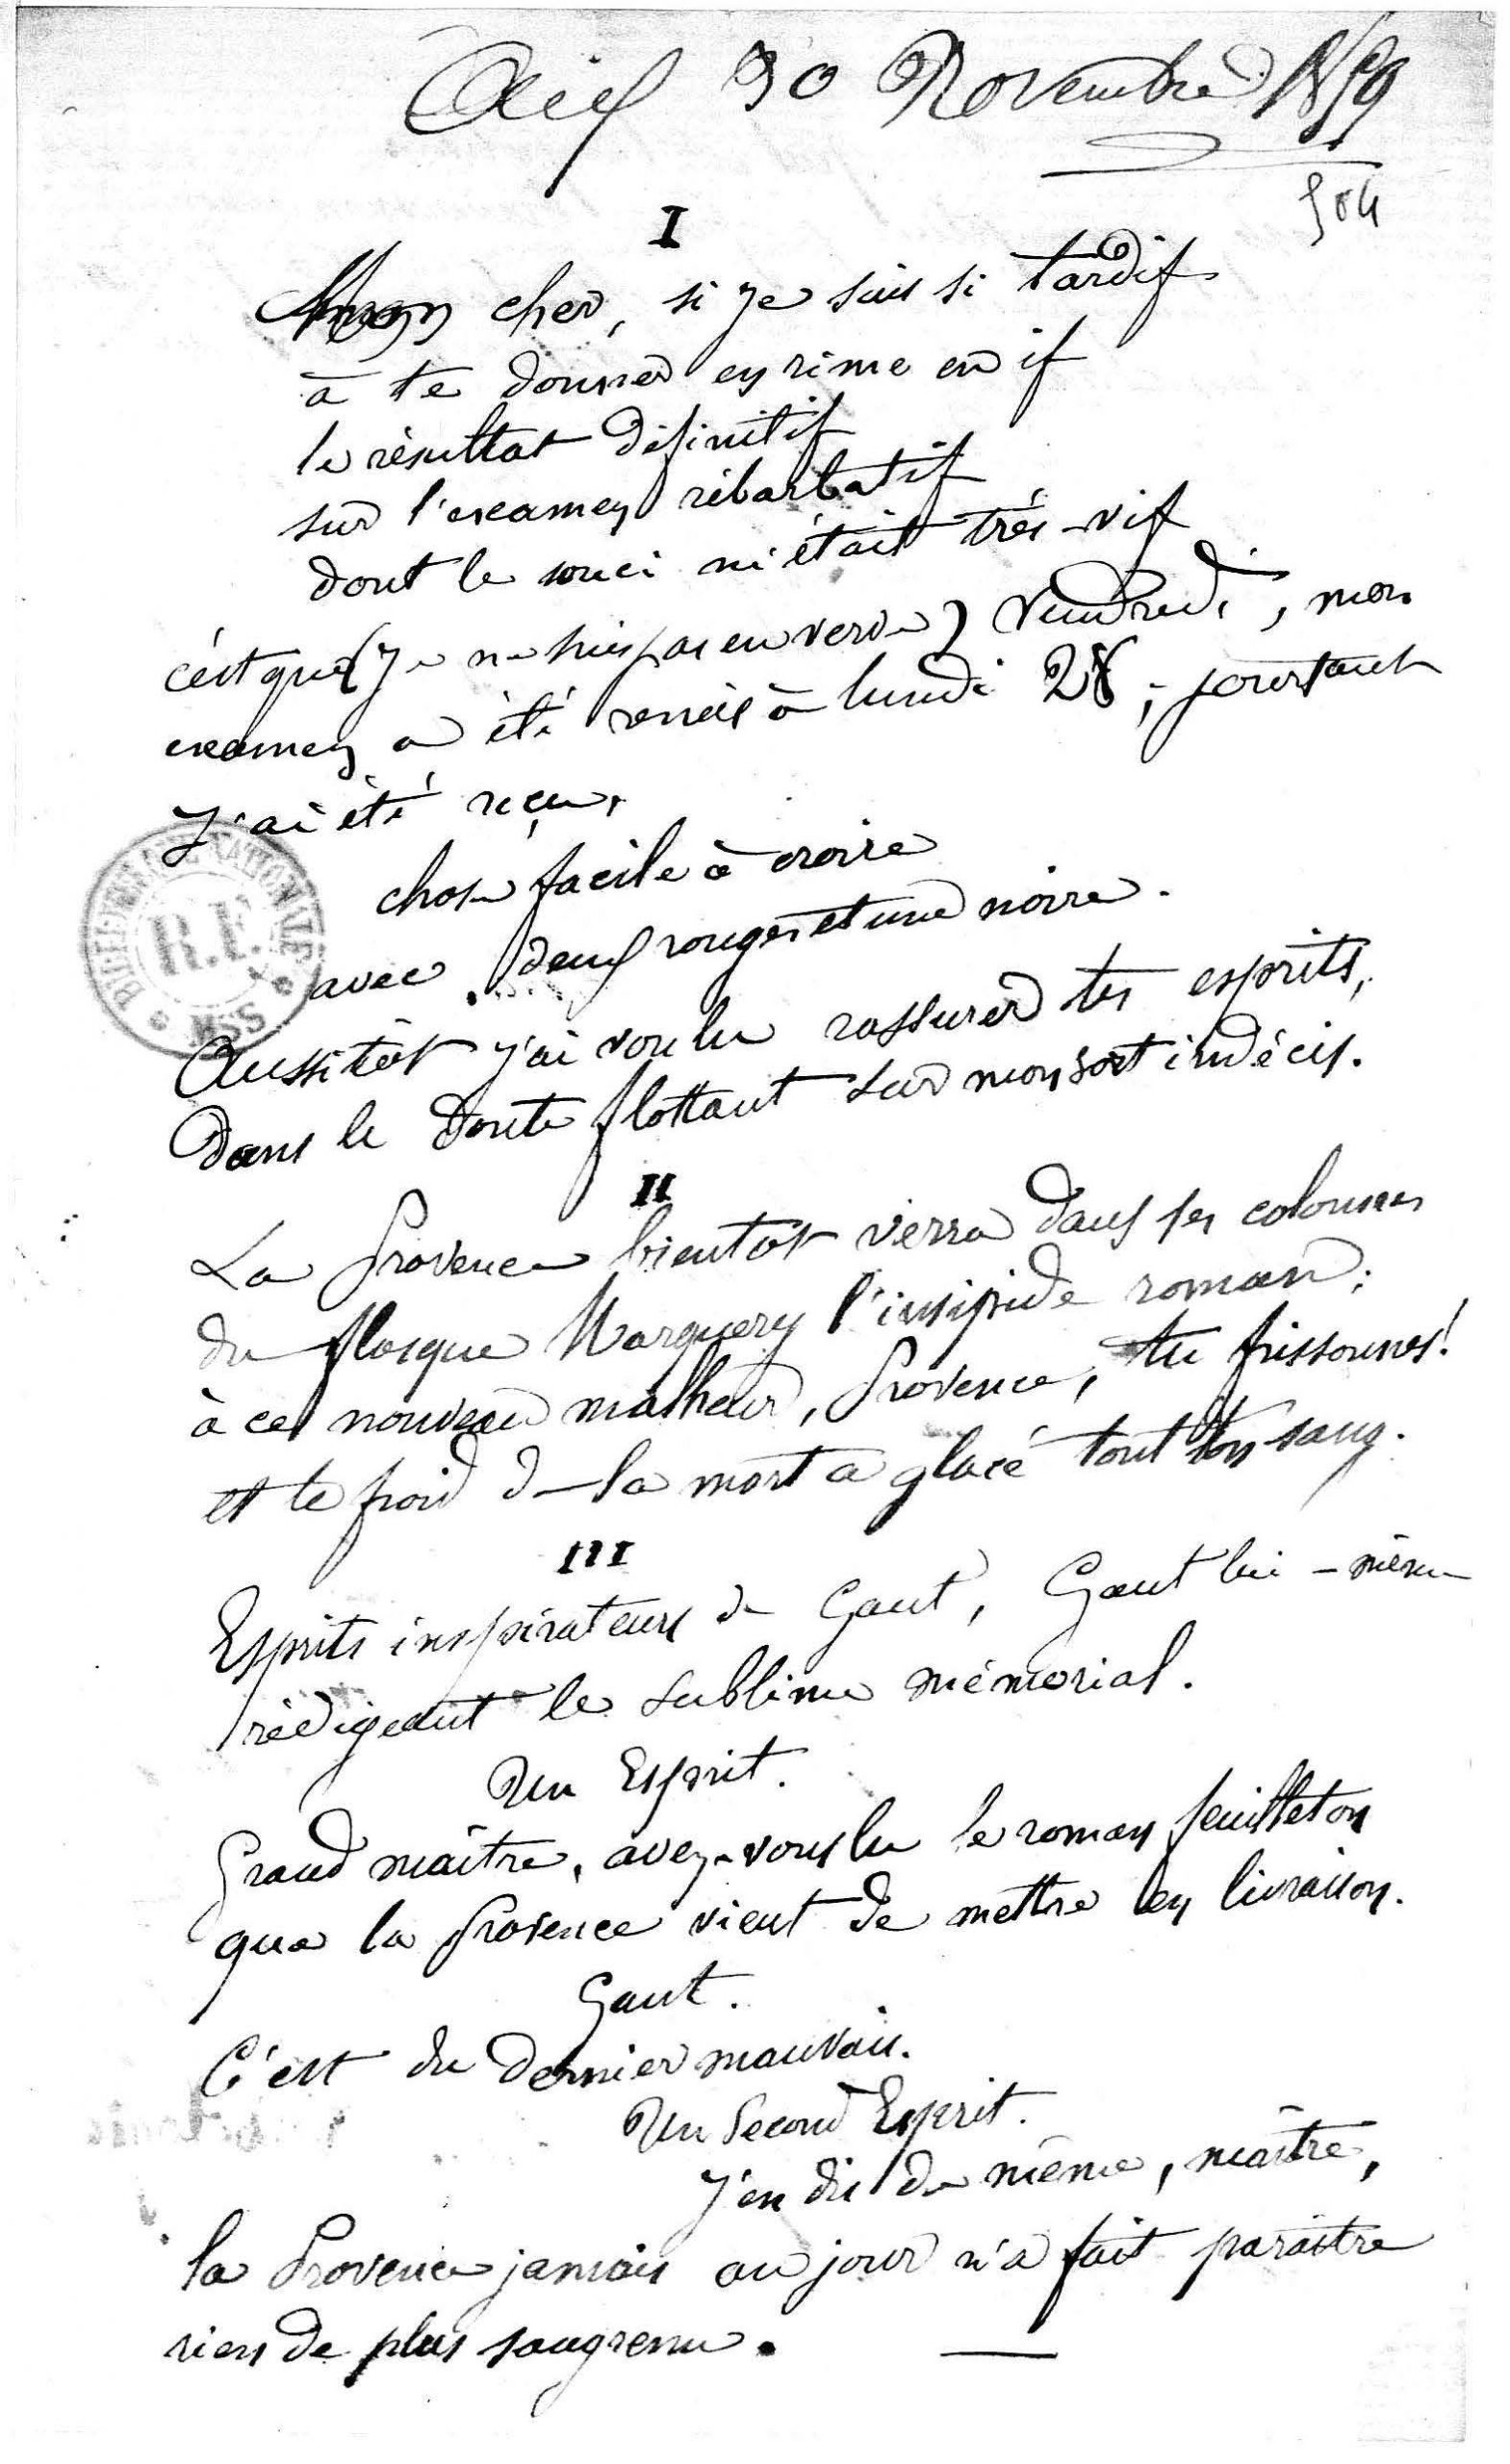 Aix 30 Novembre 1859
504
I
Mon cher, si je suis si tardif
à te donner en rime en if
le résultat définitif
sur l'examen rébarbatif
dont le souci m'était très-vif
c'est que (je ne suis pas en verve) Vendredi, mon
examen a été remis à lundi 28; pourtant
j'ai été reçu,
chose facile à croire
avec deux rouges et une noire.
Aussitôt j'ai voulu rassurer tes esprits,
Dans le doute flottant sur mon sort indécis.
II
La Provence bientôt verra dans ses colonnes
du flasque Marguery l'insipide roman;
à ce nouveau malheur, Provence, tu frissonnes!
et le froid de la mort a glacé tout ton sang.
III
Esprits inspirateurs de Gaut, Gaut lui-même
rédigeant le sublime mémorial.
Un Esprit.
Grand maître, avez-vous lu le roman feuilleton
que la Provence vient de mettre en livraison.
Gaut.
C'est du dernier mauvais.
Un Second Esprit.
J'en dis de même, maître,
la Provence jamais au jour n'a fait paraître
rien de plus saugrenu.
BIBLIOTHÈQUE NATIONALE
R.F.
MSS